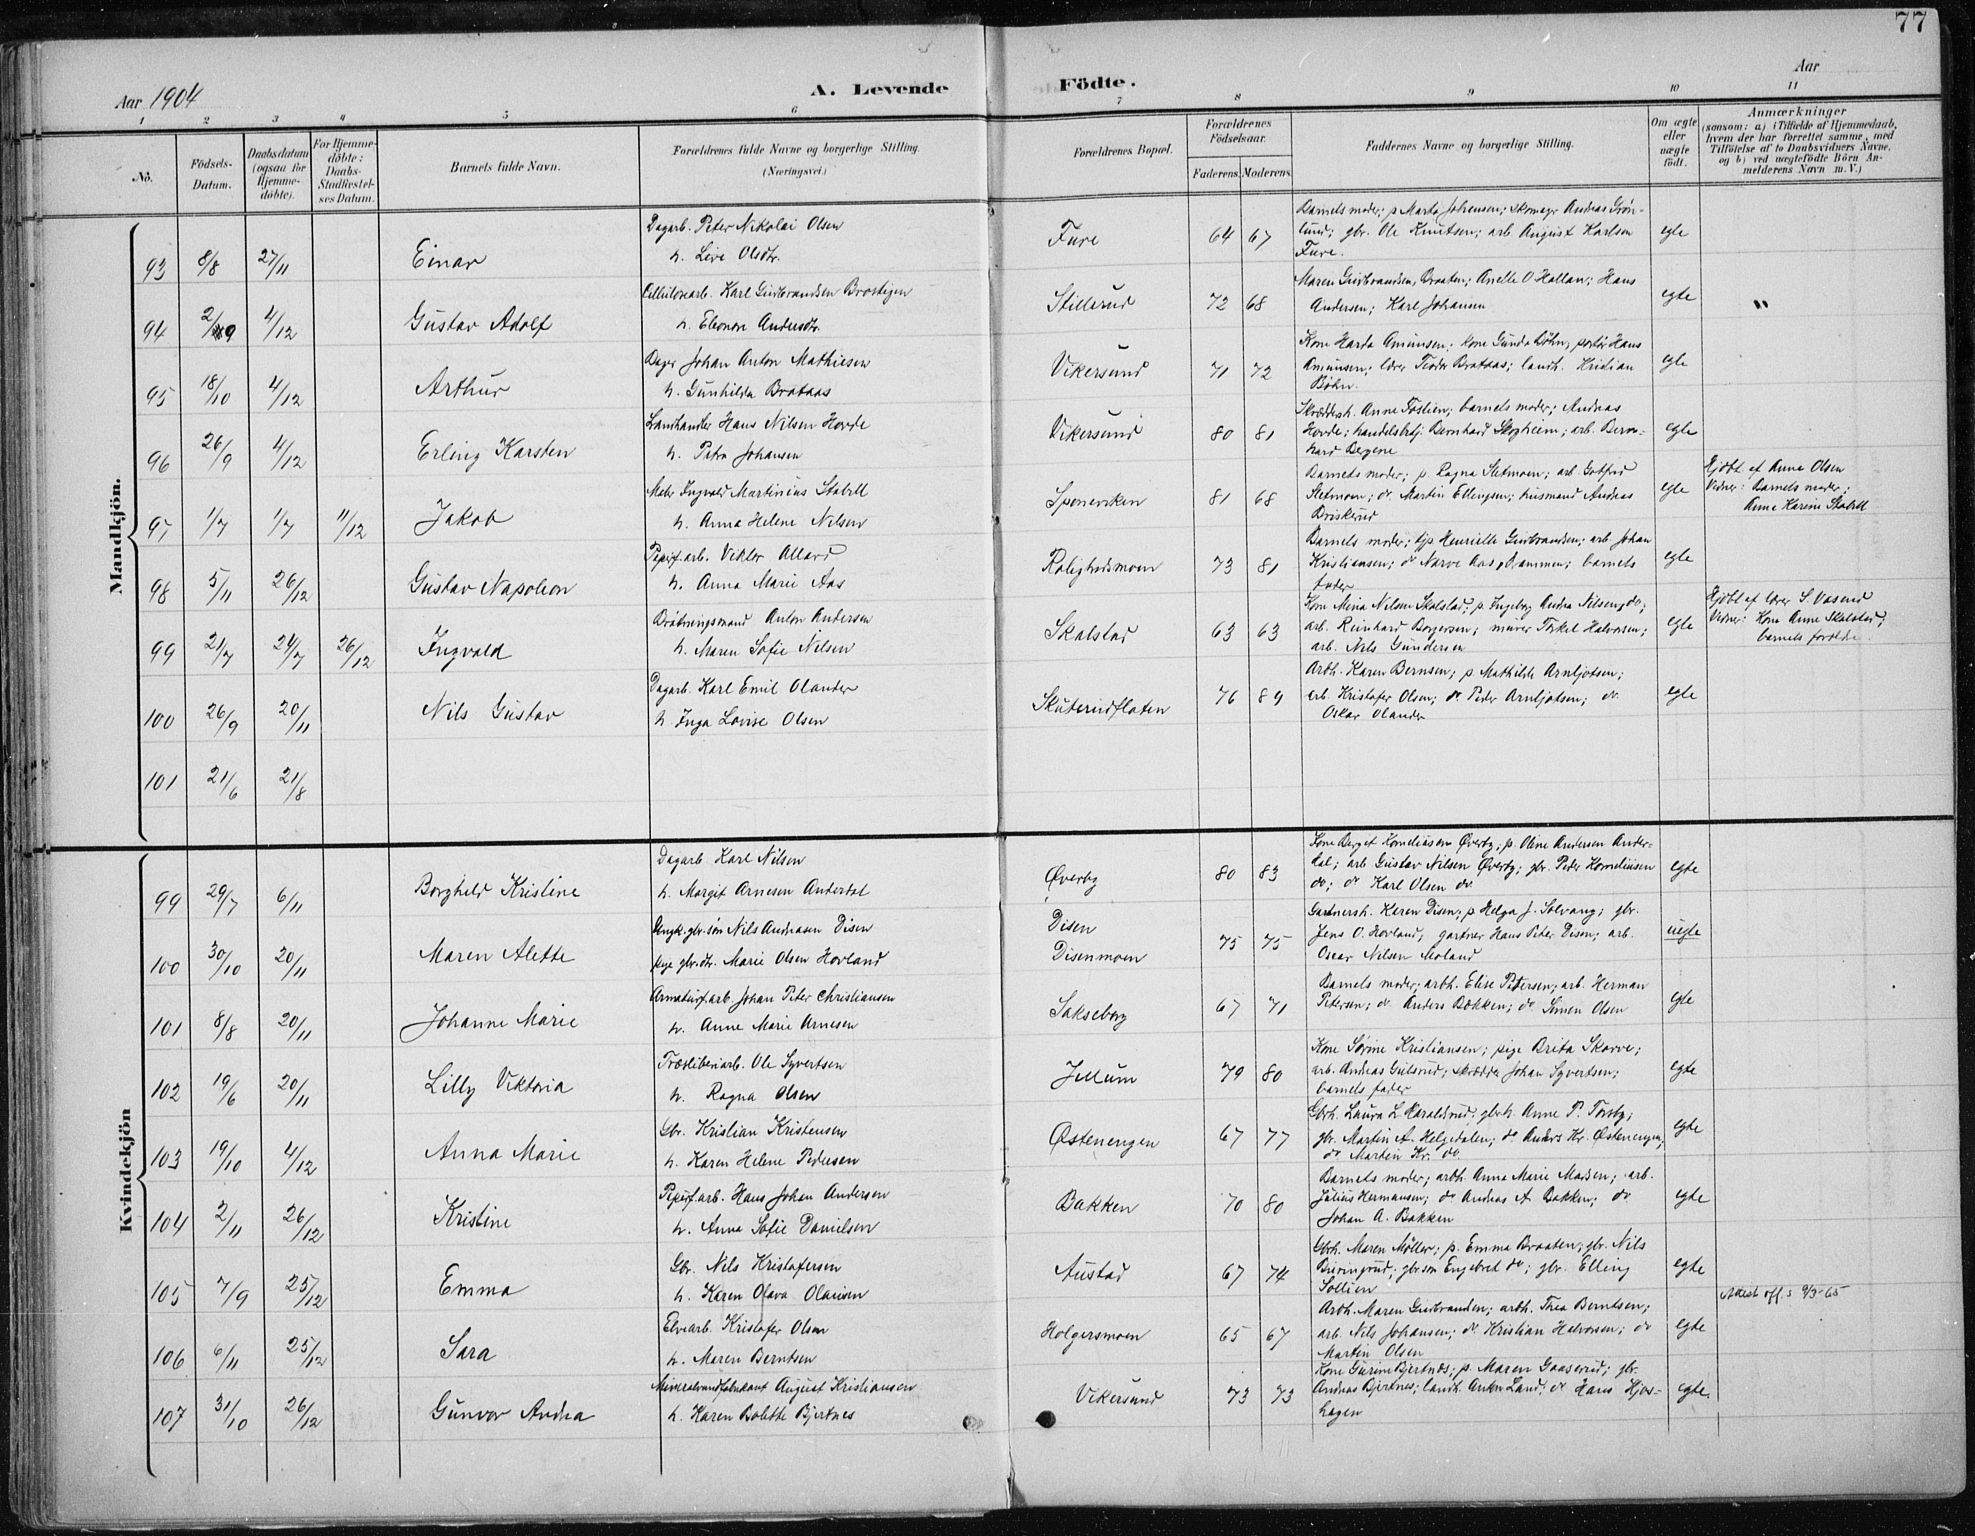 77
Aar 1904
A. Levende Födte.
Aar
1 2 3 4 5 6 7 8 9 10 11
No.
Födsels-Datum.
Daabsdatum (ogsaa for Hjemme-döbte).
For Hjemme-döbte: Daabs-Stadfæstel-ses Datum.
Barnets fulde Navn.
Forældrenes fulde Navne og borgerlige Stilling. (Næringsvei.)
Forældrenes Bopæl.
Forældrenes Födselsaar.
Faderens. Moderens.
Faddernes Navne og borgerlige Stilling.
Om ægte eller uægte födt.
Anmærkninger
(saasom: a) i Tilfælde af Hjemmedaab, hvem der har forrettet samme, med Tilföielse af to Daabsvidners Navne, og b) ved uægtefödte Börn An-melderens Navn m. V.)
Mandkjön.
93 8/8 27/11 Einar
Dagarb. Peter Nikolai Olsen
h. Live Olsdtr.
Fure 64 67
Barnets moder; p Marta Johansen; skomager Andreas Grøn-
lund; gbr. Ole Knutsen; arb August Karlsen
Fure.
egte
94 2/9 4/12 Gustav Adolf
Cellulosearb. Karl Gudbrandsen Brostigen
h. Eleonore Andersdtr.
Stillerud 72 68
Maren Gudbrandsen Braaten; Anette O Hallan; Hans
Andersen; Karl Johansen
egte "
95 18/10 4/12 Arthur
Bager Johan Anton Mathiesen
h. Gunhilda Brataas
Vikersund 71 72
Kone Marta Amunsen; kone Gunda Bøhn; portør Hans
Amunsen; lærer Teodor Brataas; landh. Kristian
Bøhn.
egte
96 26/9 4/12 Erling Karsten
Landhandler Hans Nilsen Hovde
h. Petra Johansen
Vikersund 80 81
Skræddersh. Anne Fostien; barnets moder; Andreas
Hovde; handelsbetj. Bernhard Skogheim; arb. Bern-
hard Bergene
egte
97 1/7 1/7 11/12 Jakob
Maler Ingvald Martinius Stabell
h. Anna Helene Nilsen
Sponeviken 81 68
Barnets moder; p Ragna Sletmoen; arb Gotfred
Sletmoen; do Martin Ellingsen; husmand Andreas
Briskerud
egte
Hjdbt. af Anna Olsen
Vidner: Barnets moder;
Anne Karine Stabell
98 5/11 26/12 Gustav Napoleon
Papirf.arb. Viktor Allard
h. Anna Marie Aas
Rolighedsmoen 73 81
Barnets moder; tjp Henriette Gudbrandsen; arb Johan
Kristiansen; do Narve Aas, Drammen; barnets
fader
egte
99 21/7 24/7 26/12 Ingvald
Brøtningsmand Anton Andersen
h. Maren Sofie Nilsen
Skalstad 63 63
Kone Mina Nilsen Skalstad; p. Ingeborg Andrea Nilsen, do;
arb. Reinhard Borgersen; murer Torkel Halvorsen;
arb. Nils Gundersen
egte
Hjdbt af lærer S. Vasend
Vidner: Kone Anne Skalstad;
barnets forældre.
100 26/9 20/11 Nils Gustav
Dagarb. Karl Emil Olander
h Inga Lovise Olsen
Skuterudflaten 76 89
Arbh. Karen Bernsen; p Mathilde Arnljotsen;
arb. Kristofer Olsen; do Peder Arnljotsen; do
Oskar Olander
egte
101 21/6 21/8
Kvindekjön
99 29/7 6/11 Borghild Kristine
Dagarb Karl Nilsen
h. Margit Arnesen Anderdal
Øverby 80 83
Kone Berget Korneliussen Øverby; p. Oline Andersen Ander-
dal; arb Gustav Nilsen Øverby; gbr. Peder Korneliusen
do; do Karl Olsen do
egte
100 30/10 20/11 Maren Alette
Ungk. gbr.søn Nils Andreasen Disen
pige gbr.dtr. Marie Olsen Hovland
Disen
Disenmoen 75 75
Gartnersh. Karen Disen; p Helga J. Solvang; gbr.
Jens O. Hovland; gartner Hans Peter Disen; arb.
Oscar Nilsen Moland
uegte
101 8/8 20/11 Johanne Marie
Armaturf.arb. Johan Peter Christiansen
h. Anne Marie Arnesen
Sakseborg 67 71
Barnets moder; arbh. Elise Petersen; arb. Herman
Petersen; do Anders Bakken; do Simen Olsen
egte
102 19/6 20/11 Lilly Viktoria
Træsliberiarb. Ole Syvertsen
h. Ragna Olsen
Jellum 79 80
Kone Sørine Kristiansen; pige Brita Skarve;
arb. Andreas Gulsrud; skrædder Johan Syvertsen;
barnets fader
egte
103 19/10 4/12 Anna Marie
Gbr. Kristian Kristensen
h. Karen Helene Pedersen
Østenengen 67 77
Gbrh. Laura L. Haraldsrud; gbrh. Anne P. Forsby;
gbr. Martin A. Helgedalen; do Anders Kr. Østenengen;
do Martin Kr. do
egte
104 2/11 26/12 Kristine
Papirf.arb. Hans Johan Andersen
h. Anna Sofie Danielsen
Bakken 70 80
Barnets moder; arbh. Anna Marie Madsen; arb.
Julius Hermansen; do Andreas A Bakken; do
Johan A. Bakken
egte
105 7/9 25/12 Emma
Gbr. Nils Kristofersen
h. Karen Olava Olausen
Austad 67 74
Gbrh. Maren Møller; p. Emma Braaten; gbr. Nils
Buringrud; gbrsøn Engebret do; gbr. Elling
Sollien
egte
Attest off. s 9/3-65
106 6/11 25/12 Sara
Elvearb. Kristofer Olsen
h. Maren Berntsen
Holgersmoen 65 67
Arbh. Maren Gudbrandsen; arbh. Thea Berntsen;
arb. Nils Johansen; do Kristian Halvorsen; do
Martin Olsen
egte
107 31/10 26/12 Gunvor Andrea
Mineralvandfabrikant August Kristiansen
h. Karen Bolette Bjertnes
Vikersund 73 73
Kone Gurine Bjertnes; p. Maren Gaaserud; gbr.
Andreas Bjertnes; landh. Anton Land; do Hans Hjos-
hagen
egte